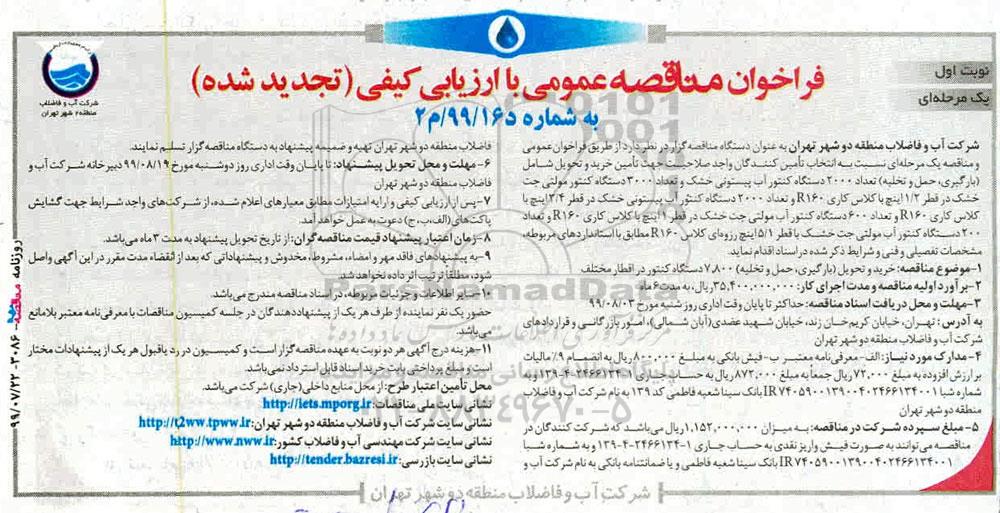 نوبت اول
یک مرحله‌ای
شرکت آب و فاضلاب
منطقه ۲ شهر تهران
فراخوان مناقصه عمومی با ارزیابی کیفی (تجدید شده)
به شماره د۹۹/۱۶/م۲
شرکت آب و فاضلاب منطقه دو شهر تهران به عنوان دستگاه مناقصه گزار در نظر دارد از طریق فراخوان عمومی
و مناقصه یک مرحله‌ای نسبت به انتخاب تأمین کنندگان واجد صلاحیت جهت تأمین خرید و تحویل شامل
(بارگیری، حمل و تخلیه) تعداد ۲۰۰۰ دستگاه کنتور آب پیستونی خشک و تعداد ۳۰۰۰ دستگاه کنتور مولتی جت
خشک در قطر ۱/۲ اینچ با کلاس کاری R۱۶۰ و تعداد ۲۰۰۰ دستگاه کنتور آب پیستونی خشک در قطر ۳/۴ اینچ با
کلاس کاری R۱۶۰ و تعداد ۶۰۰ دستگاه کنتور آب مولتی جت خشک در قطر ۱ اینچ با کلاس کاری R۱۶۰ و تعداد
۲۰۰ دستگاه کنتور آب مولتی جت خشک با قطر ۱/۵ اینچ رزوه‌ای کلاس R۱۶۰ مطابق با استانداردهای مربوطه،
مشخصات تفصیلی و فنی و شرایط ذکر شده در اسناد اقدام نماید.
۱-موضوع مناقصه: خرید و تحویل (بارگیری، حمل و تخلیه) ۷,۸۰۰ دستگاه کنتور در اقطار مختلف
۲-برآورد اولیه مناقصه و مدت اجرای کار: ۳۵,۴۰۰,۰۰۰,۰۰۰ریال، به مدت ۶ ماه
۳-مهلت و محل دریافت اسناد مناقصه: حداکثر تا پایان وقت اداری روز شنبه مورخ ۹۹/۰۸/۰۳
به آدرس: تهران، خیابان کریم‌خان زند، خیابان شهید عضدی (آبان شمالی)، امور بازرگانی و قراردادهای
شرکت آب و فاضلاب منطقه دو شهر تهران
۴-مدارک مورد نیاز: الف-معرفی‌نامه معتبر ب-فیش بانکی به مبلغ ۸۰۰,۰۰۰ ریال به انضمام ۹٪ مالیات
بر ارزش افزوده به مبلغ ۷۲,۰۰۰ ریال جمعاً به مبلغ ۸۷۲,۰۰۰ ریال به حساب جاری ۱-۲۴۶۶۱۳۴-۴-۱۳۹ و به
شماره شبا IR۷۴۰۵۹۰۰۱۳۹۰۰۴۰۲۴۶۶۱۳۴۰۰۱ بانک سینا شعبه فاطمی کد ۱۳۹ به نام شرکت آب و فاضلاب
منطقه دو شهر تهران
۵-مبلغ سپرده شرکت در مناقصه: به میزان ۱,۱۵۲,۰۰۰,۰۰۰ ریال می‌باشد که شرکت کنندگان در
مناقصه می‌توانند به صورت فیش واریز نقدی به حساب جاری ۱-۲۴۶۶۱۳۴-۴-۱۳۹ و به شماره شبا
IR۷۴۰۵۹۰۰۱۳۹۰۰۴۰۲۴۶۶۱۳۴۰۰۱ بانک سینا شعبه فاطمی و یا ضمانتنامه بانکی به نام شرکت آب و
فاضلاب منطقه دو شهر تهران تهیه و ضمیمه پیشنهاد به دستگاه مناقصه گزار تسلیم نمایند.
۶-مهلت و محل تحویل پیشنهاد: تا پایان وقت اداری روز دوشنبه مورخ ۹۹/۰۸/۱۹ دبیرخانه شرکت آب و
فاضلاب منطقه دو شهر تهران
۷-پس از ارزیابی کیفی و ارایه امتیازات مطابق معیارهای اعلام شده، از شرکت‌های واجد شرایط جهت گشایش
پاکت‌های (الف، ب، ج) دعوت به عمل خواهد آمد.
۸-زمان اعتبار پیشنهاد قیمت مناقصه‌گران: از تاریخ تحویل پیشنهاد به مدت ۳ ماه می‌باشد.
۹-به پیشنهادهای فاقد مهر و امضاء، مشروط، مخدوش و پیشنهاداتی که بعد از انقضاء مدت مقرر در این آگهی واصل
شود، مطلقاً ترتیب اثر داده نخواهد شد.
۱۰-سایر اطلاعات و جزئیات مربوطه، در اسناد مناقصه مندرج می‌باشد.
حضور یک نفر نماینده از طرف هر یک از پیشنهاددهندگان در جلسه کمیسیون مناقصات با معرفی‌نامه معتبر بلامانع
می‌باشد.
۱۱-هزینه درج آگهی هر دو نوبت به عهده مناقصه گزار است و کمیسیون در رد یا قبول هر یک از پیشنهادات مختار
است و مبلغ پرداختی بابت خرید اسناد قابل استرداد نمی‌باشد.
محل تأمین اعتبار طرح: از محل منابع داخلی (جاری) شرکت می‌باشد.
نشانی سایت ملی مناقصات: http://iets.mporg.ir
نشانی سایت شرکت آب و فاضلاب منطقه دو شهر تهران: http://t2ww.tpww.ir
نشانی سایت شرکت مهندسی آب و فاضلاب کشور: http://www.nww.ir
نشانی سایت بازرسی: http://tender.bazresi.ir
شرکت آب و فاضلاب منطقه دو شهر تهران
روزنامه مناقصه ۳۰۸۶ - ۹۹/۰۷/۲۲
ParsNamadData
۰۲۱-۸۸۳۴۹۶۷۰-۵